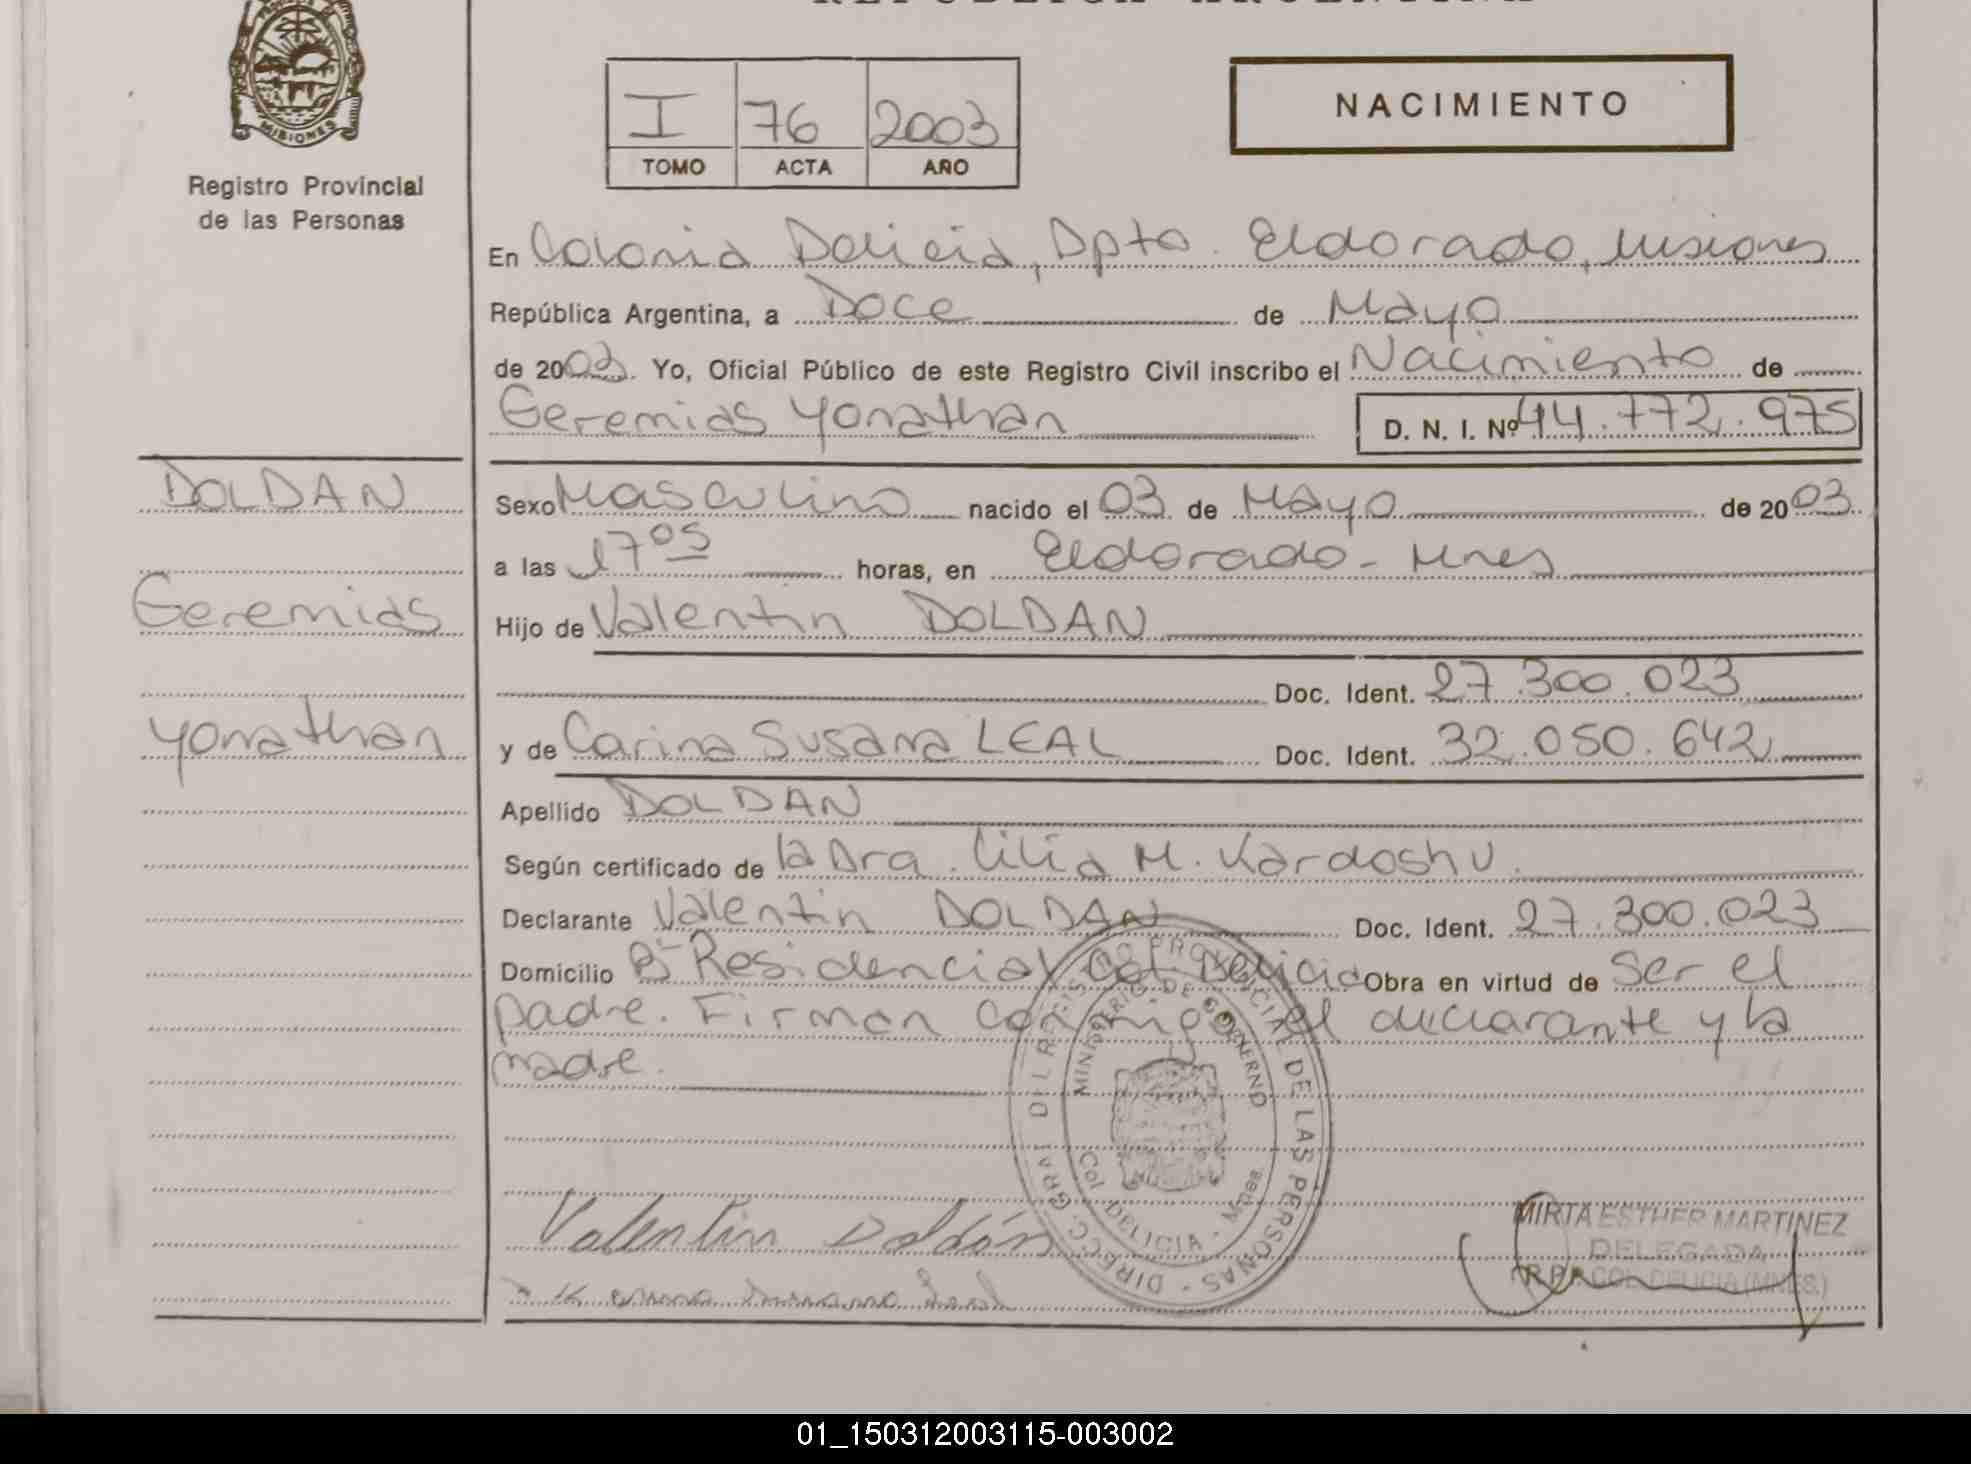 REPUBLICA ARGENTINA
MISIONES
Registro Provincial
de las Personas
I 76 2003
TOMO ACTA AÑO
NACIMIENTO
En Colonia Delicia, Dpto. Eldorado, Misiones
República Argentina, a Doce de Mayo
de 2003. Yo, Oficial Público de este Registro Civil inscribo el Nacimiento de
Geremias Yonathan D. N. I. Nº 44.772.975
DOLDAN
Geremias
Yonathan
Sexo Masculino nacido el 03 de Mayo de 2003
a las 17 05 horas, en Eldorado - Mnes
Hijo de Valentin DOLDAN
Doc. Ident. 27.300.023
y de Carina Susana LEAL Doc. Ident. 32.050.642
Apellido DOLDAN
Según certificado de la Dra. Lilia M. Kardoshu.
Declarante Valentin DOLDAN Doc. Ident. 27.300.023
Domicilio Bº Residencial Col Delicia Obra en virtud de Ser el
padre. Firman conmigo el declarante y la
madre.
DIRECC. GRAL DEL REGISTRO PROVINCIAL DE LAS PERSONAS
MINISTERIO DE GOBIERNO
Col DELICIA - Mnes
Valentin Doldán
Susana Leal
MIRTA ESTHER MARTINEZ
DELEGADA
R.P.P. COL. DELICIA (MNES.)
01_150312003115-003002